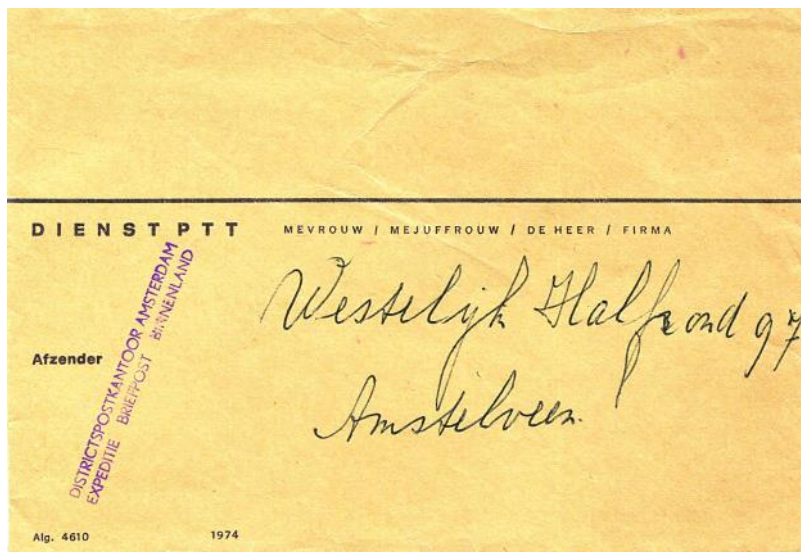 DIENST PTT
MEVROUW / MEJUFFROUW / DE HEER / FIRMA
Westelijk Halfrond 97
Amstelveen
Afzender
DISTRICTSPOSTKANTOOR AMSTERDAM
EXPEDITIE BRIEFPOST BINNENLAND
Alg. 4610
1974